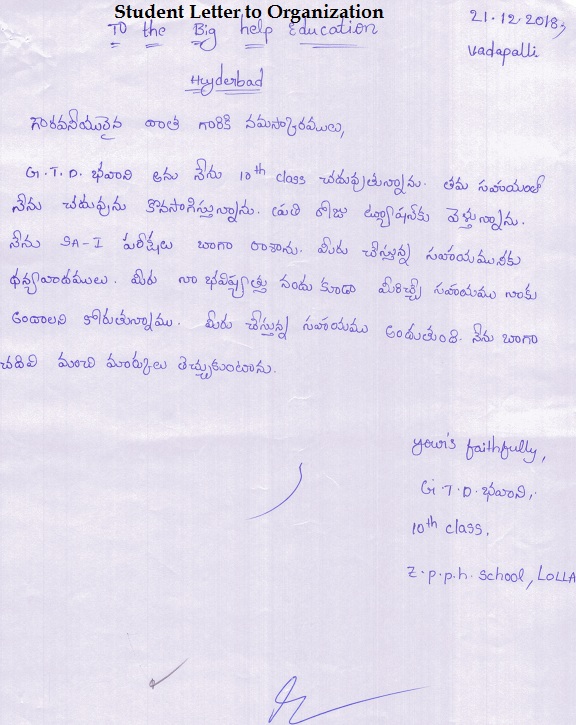 Student Letter to Organization
21.12.2018,
Vadapalli
To the Big help Education
Hyderbad
గౌరవనీయులైన దాత గారికి నమస్కారములు,
G.T.D. భవాని అను నేను 10th class చదువుతున్నాను. తమ సహాయంతో
నేను చదువును కొనసాగిస్తున్నాను. ప్రతి రోజు ట్యూషన్‌కు వెళ్తున్నాను.
నేను SA-I పరీక్షలు బాగా రాశాను. మీరు చేస్తున్న సహాయమునకు
ధన్యవాదములు. మీరు నా భవిష్యత్తు నందు కూడా మీరిచ్చే సహాయము నాకు
ఉండాలని కోరుతున్నాము. మీరు చేస్తున్న సహాయము అందుతుంది. నేను బాగా
చదివి మంచి మార్కులు తెచ్చుకుంటాను.
your's faithfully,
G.T.D. భవాని,
10th class,
Z.p.p.h. school, LOLLA